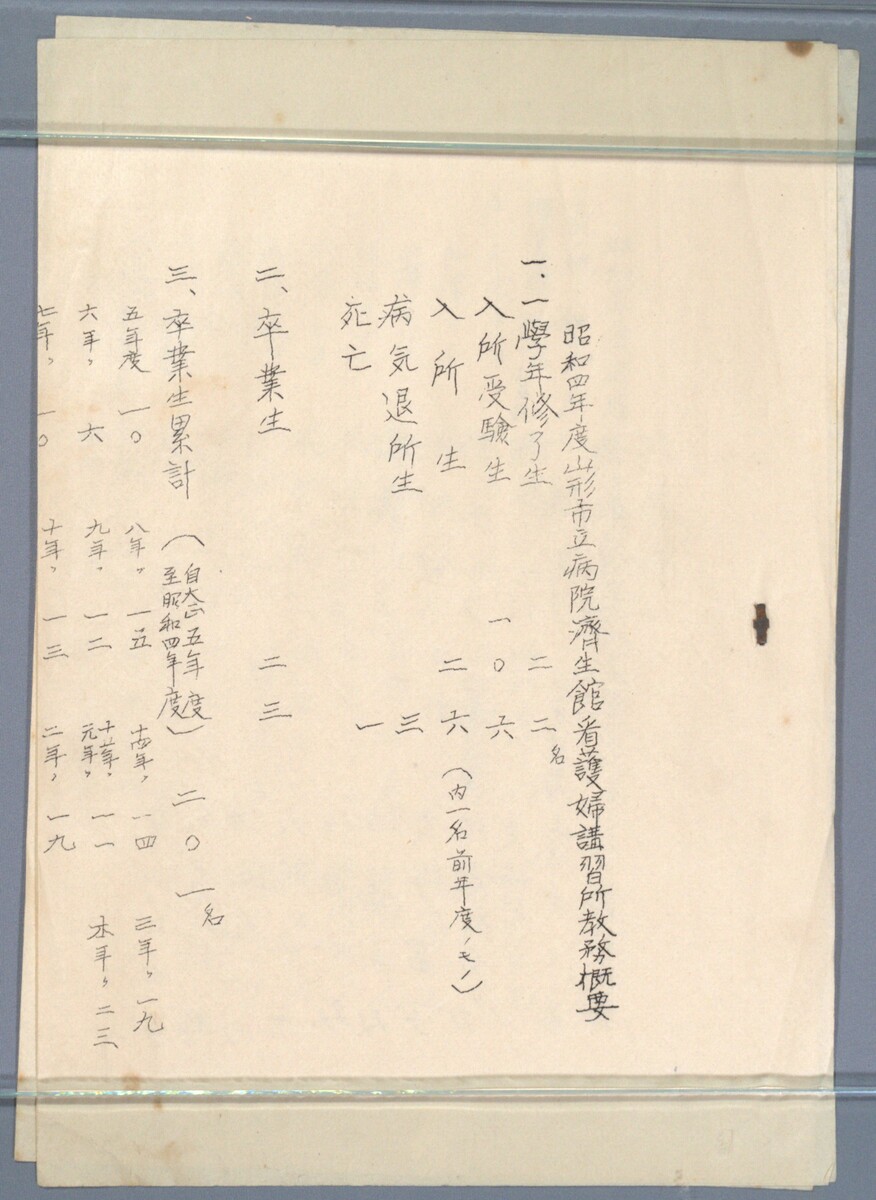 昭和四年度山形市立病院濟生館看護婦講習所教務概要
一、一學年修了生 二二名
入所受驗生 一〇六
入所生 二六(内一名前年度ノモノ)
病気退所生 三
死亡 一
二、卒業生 二三
三、卒業生累計(自大正五年度至昭和四年度)二〇一名
五年度 一〇 八年〃 一五 十四年〃 一四 三年〃 一九
六年〃 六 九年〃 一二 十五年、元年〃 一一 本年〃 二三
七年〃 一〇 十年〃 一三 二年〃 一九